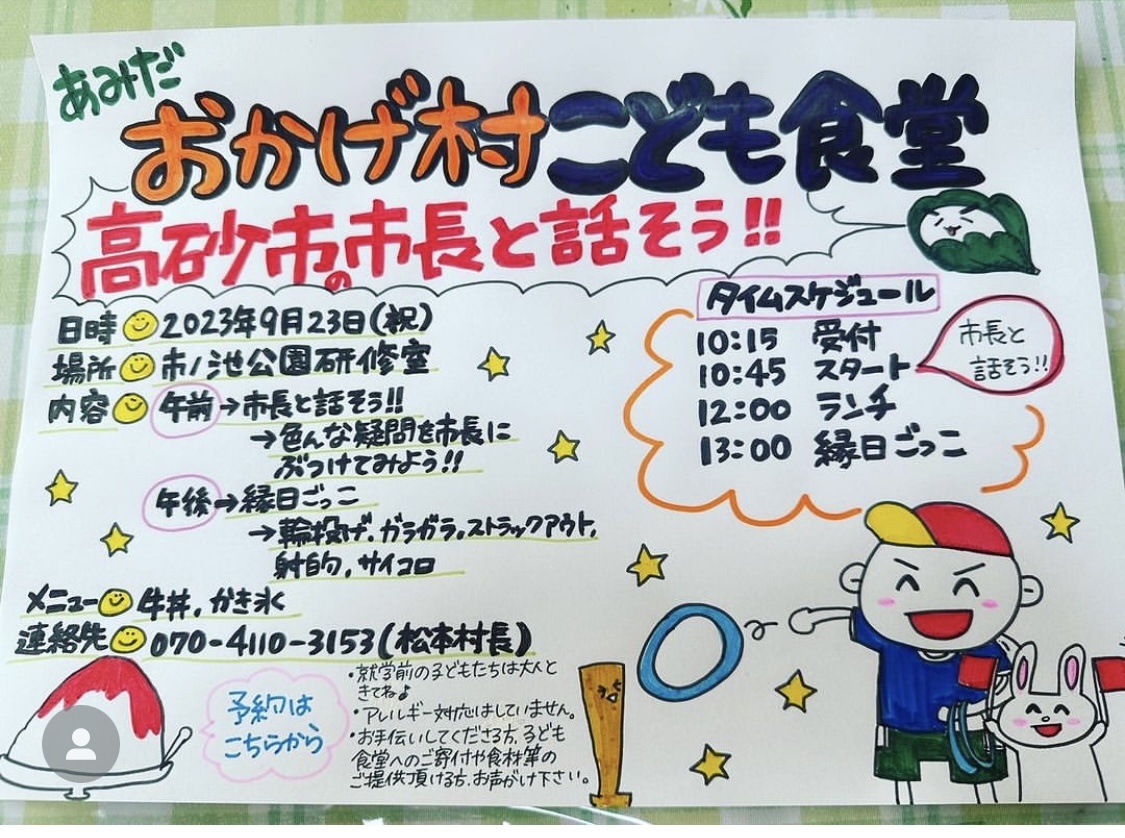 あみだ
おかげ村こども食堂
高砂市の市長と話そう!!
日時 2023年9月23日(祝)
場所 市ノ池公園研修室
内容 午前→市長と話そう!!
→色んな疑問を市長に
ぶつけてみよう!!
午後→縁日ごっこ
→輪投げ,ガラガラ,ストラックアウト,
射的,サイコロ
メニュー 牛丼,かき氷
連絡先 070-4110-3153(松本村長)
タイムスケジュール
10:15 受付
10:45 スタート
12:00 ランチ
13:00 縁日ごっこ
市長と
話そう!!
予約は
こちらから
・就学前の子どもたちは大人と
きてね♪
・アレルギー対応はしていません。
・お手伝いしてくださる方,子ども
食堂へのご寄付や食材等の
ご提供頂ける方,お声がけ下さい。